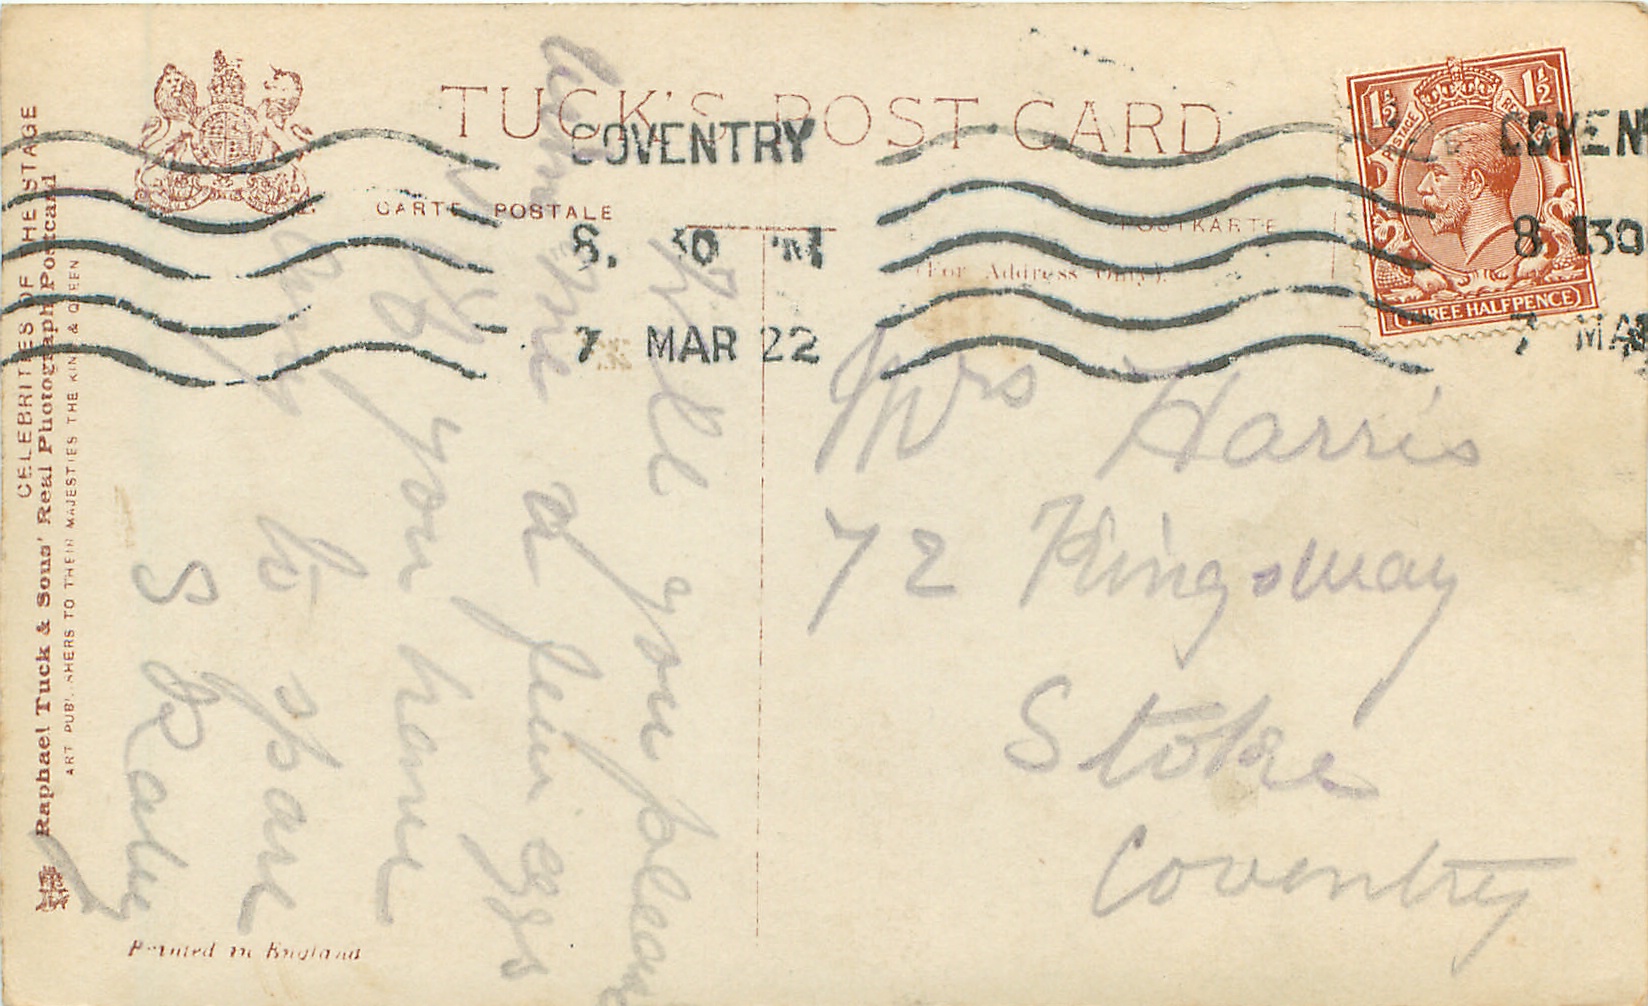 TUCK'S POST CARD
CARTE POSTALE
POSTKARTE
(For Address Only).
COVENTRY
8. 30 PM
7 MAR 22
COVEN
8 30
7 MA
1½ 1½
POSTAGE
THREE HALFPENCE
CELEBRITIES OF THE STAGE
Raphael Tuck & Sons' Real Photograph Postcard
ART PUBLISHERS TO THEIR MAJESTIES THE KING & QUEEN
Printed in England
Will you please
me a few eggs
if you have
any to spare
S
Mrs Harris
72 Kingsway
Stoke
Coventry